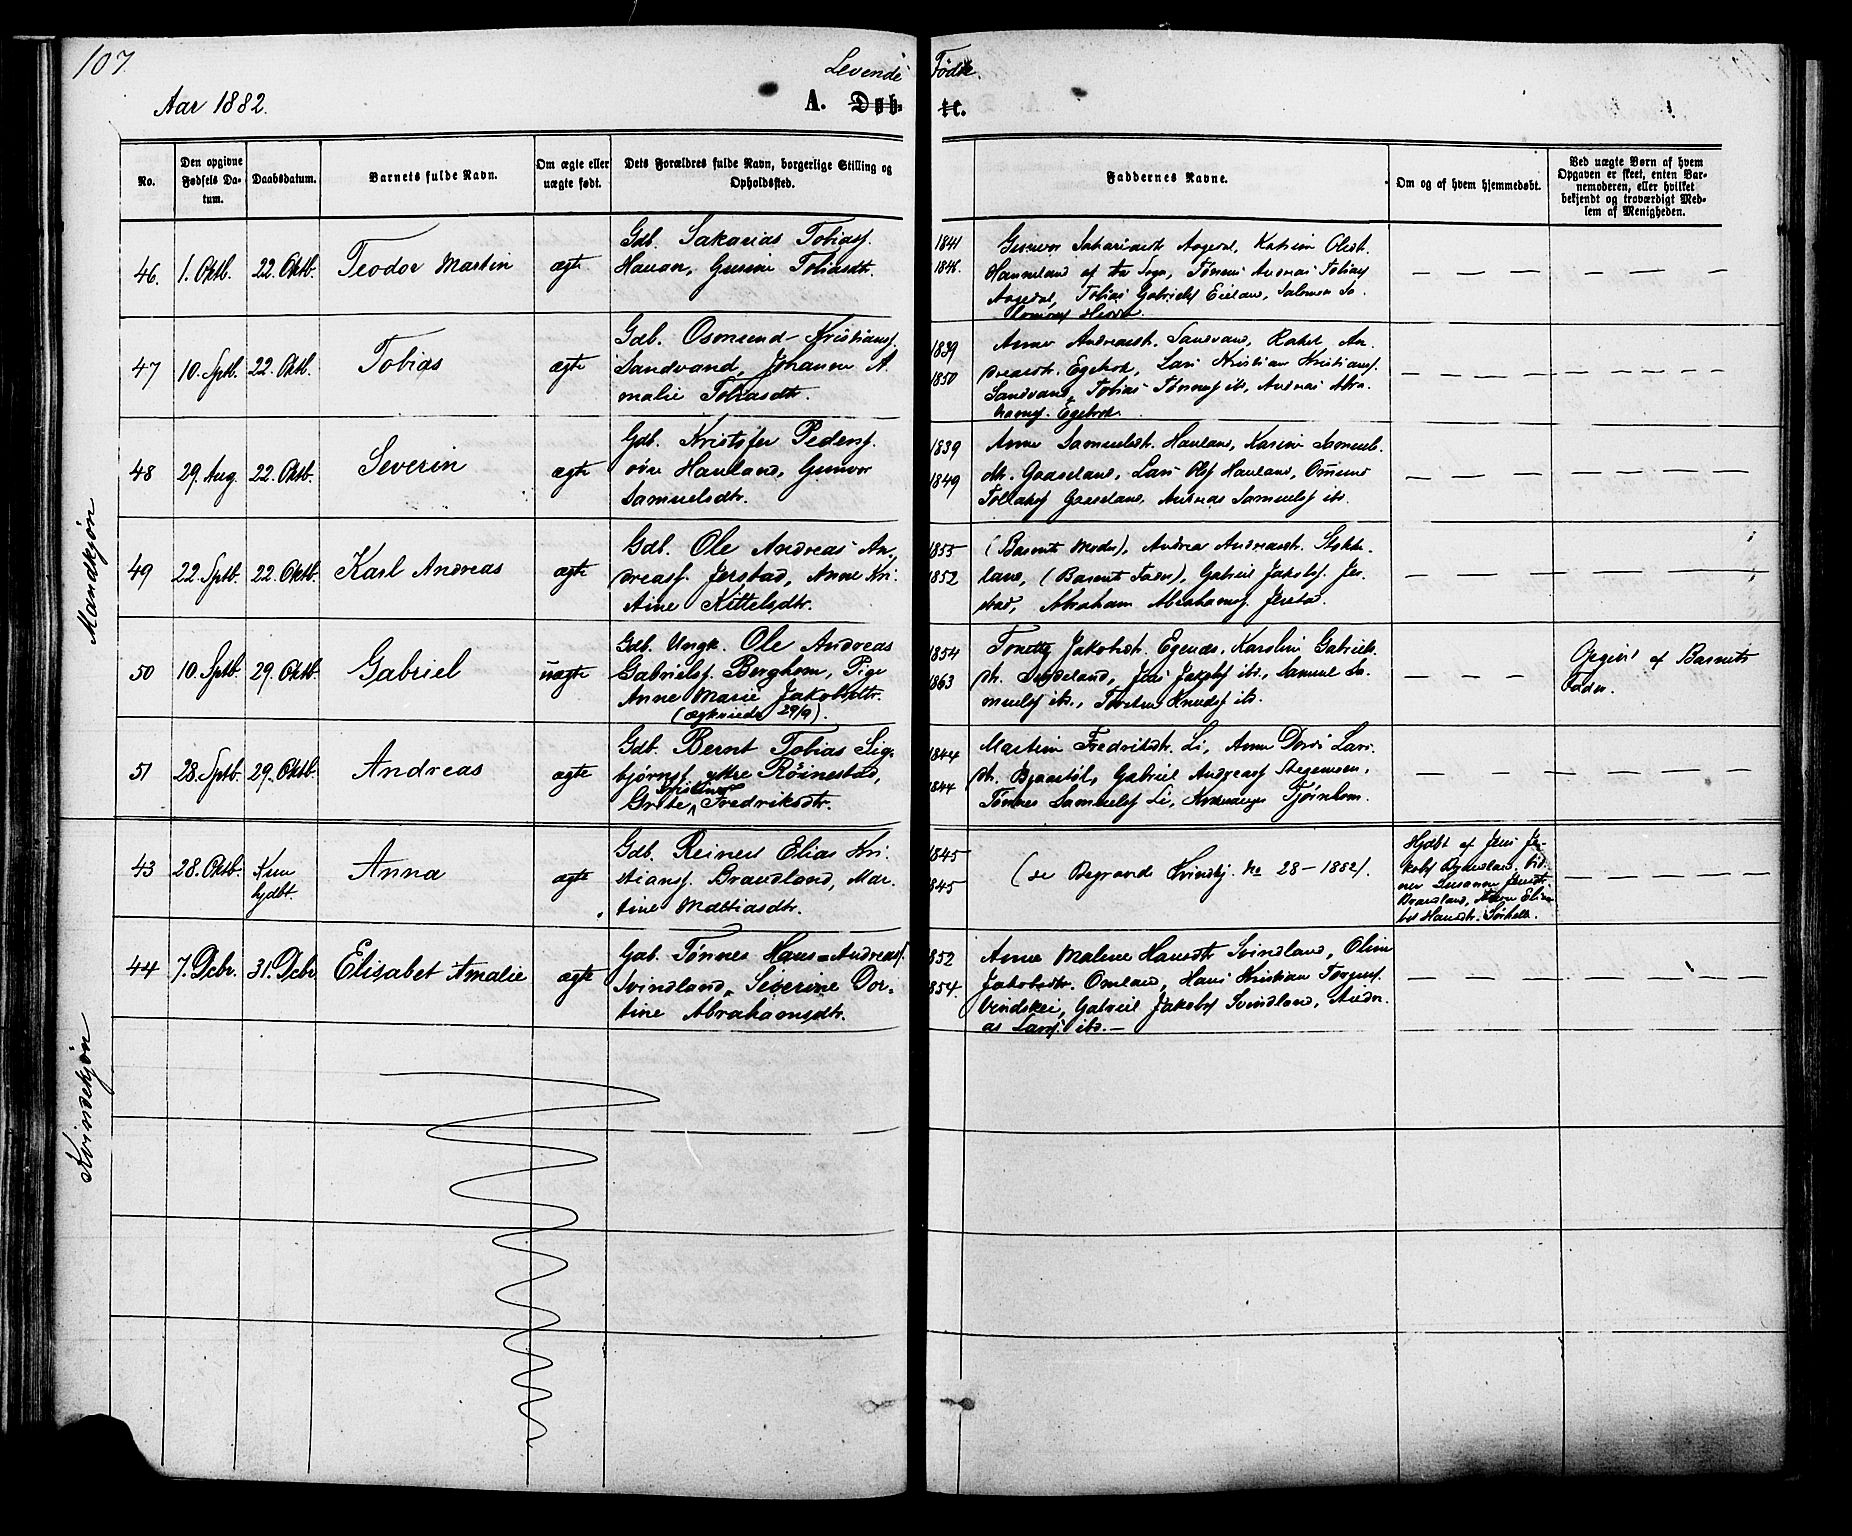 107.
Levende Fødte.
Aar 1882.
A. Døbte.
No.
Den opgivne Fødsels Datum.
Daabsdatum.
Barnets fulde Navn.
Om ægte eller uægte født.
Dets Forældres fulde Navn, borgerlige Stilling og Opholdssted.
Faddernes Navne.
Om og af hvem hjemmedøbt.
Ved uægte Børn af hvem Opgaven er skeet, enten Barnemoderen, eller hvilket bekjendt og troværdigt Medlem af Menigheden.
Mandkjøn
46. 1. Oktb. 22. Oktb. Teodor Martin ægte
Gdb. Sakarias Tobiasf.
Hauan, Gusine Tobiasdtr.
1841
1846.
Aagedal, Katrine Olesdt.
Hanneland af Sogn, Tønnes Andreas Tobiasf
Aagedal, Tobias Gabrielsf Eieland, Salomon Sa-
lomonsf
47 10. Sptb. 22. Oktb. Tobias ægte
Gdb. Osmund Kristiansf.
Sandvand, Johanne A-
malie Tobiasdtr.
1839
1850
Anne Andreasdt. Sandvand, Rakel An-
dreasdt. Egebok, Lars Kristian Kristiansf.
Sandvand, Tobias Tønnesf ibd, Andreas Abra-
hamsf. Egebok.
48 29. Aug. 22. Oktb. Severin ægte
Gdb. Kristofer Pedersf.
øvre Hauland, Gunvor
Samuelsdtr.
1839
1849
Anne Samuelsdt. Hauland, Karine Samuels-
dt. Gaaseland, Lars Olsf Hauland, Osmund
Tollaksf Gaaseland, Andreas Samuelsf ibd.
49 22. Sptb. 22. Oktb. Karl Andreas ægte
Gdb. Ole Andreas An-
dreasf. Jerstad, Anne Kri-
stine Kittelsdtr.
1855
1852
(Barnets Moder), Andrea Andreasdt. Stokke-
land, (Barnets Fader), Gabriel Jakobsf. Jer-
stad, Abraham Abrahamsf. Jerstad.
50 10. Sptb. 29. Oktb. Gabriel uægte
Gdb. Ungk. Ole Andreas
Gabrielsf. Berghom, Pige
Anne Marie Jakobsdtr.
(ægteviede 29/9).
1854
1863
Tonette Jakobsdt. Egenes, Karoline Gabriels-
dt. Jens Jakobsf ibd., Samuel Sa-
muelsf ibd., Torsten Knudsf ibd.
Opgivet af Barnets
Fader.
51 28. Sptb. 29. Oktb. Andreas ægte
Gdb. Bernt Tobias Sig-
bjørnsf. ytre Röinestad,
Grete Kristine Fredriksdtr.
1844
1844
Martine Fredriksdt. Li, Anne Dorte Lars-
dt. Gabriel Andreasf Stegemoen,
Tønnes Samuelsf Li, Tjørnhom.
Kvindekjøn
43 28. Oktb. Kun
hjdbt. Anna ægte
Gdb. Reinert Elias Kri-
stiansf. Brandsland, Mar-
tine Mattiasdtr.
1845
1845
(se Begravede Kvindkj. No 28-1882).
Hjdbt af Jens Ja-
kobsf
44 7. Dcbr. 31. Dcbr Elisabet Amalie ægte
Gab. Tønnes Hans-Andreasf.
Svindland, Severine Dor-
tine Abrahamsdtr.
1852
1854.
Anne Malene Hansdtr Svindland, Oline
Jakobsdtr. Omland, Hans Kristian Torgersf
Gabriel Jakobsf Svindland, Andre-
as Larsf ibd.—